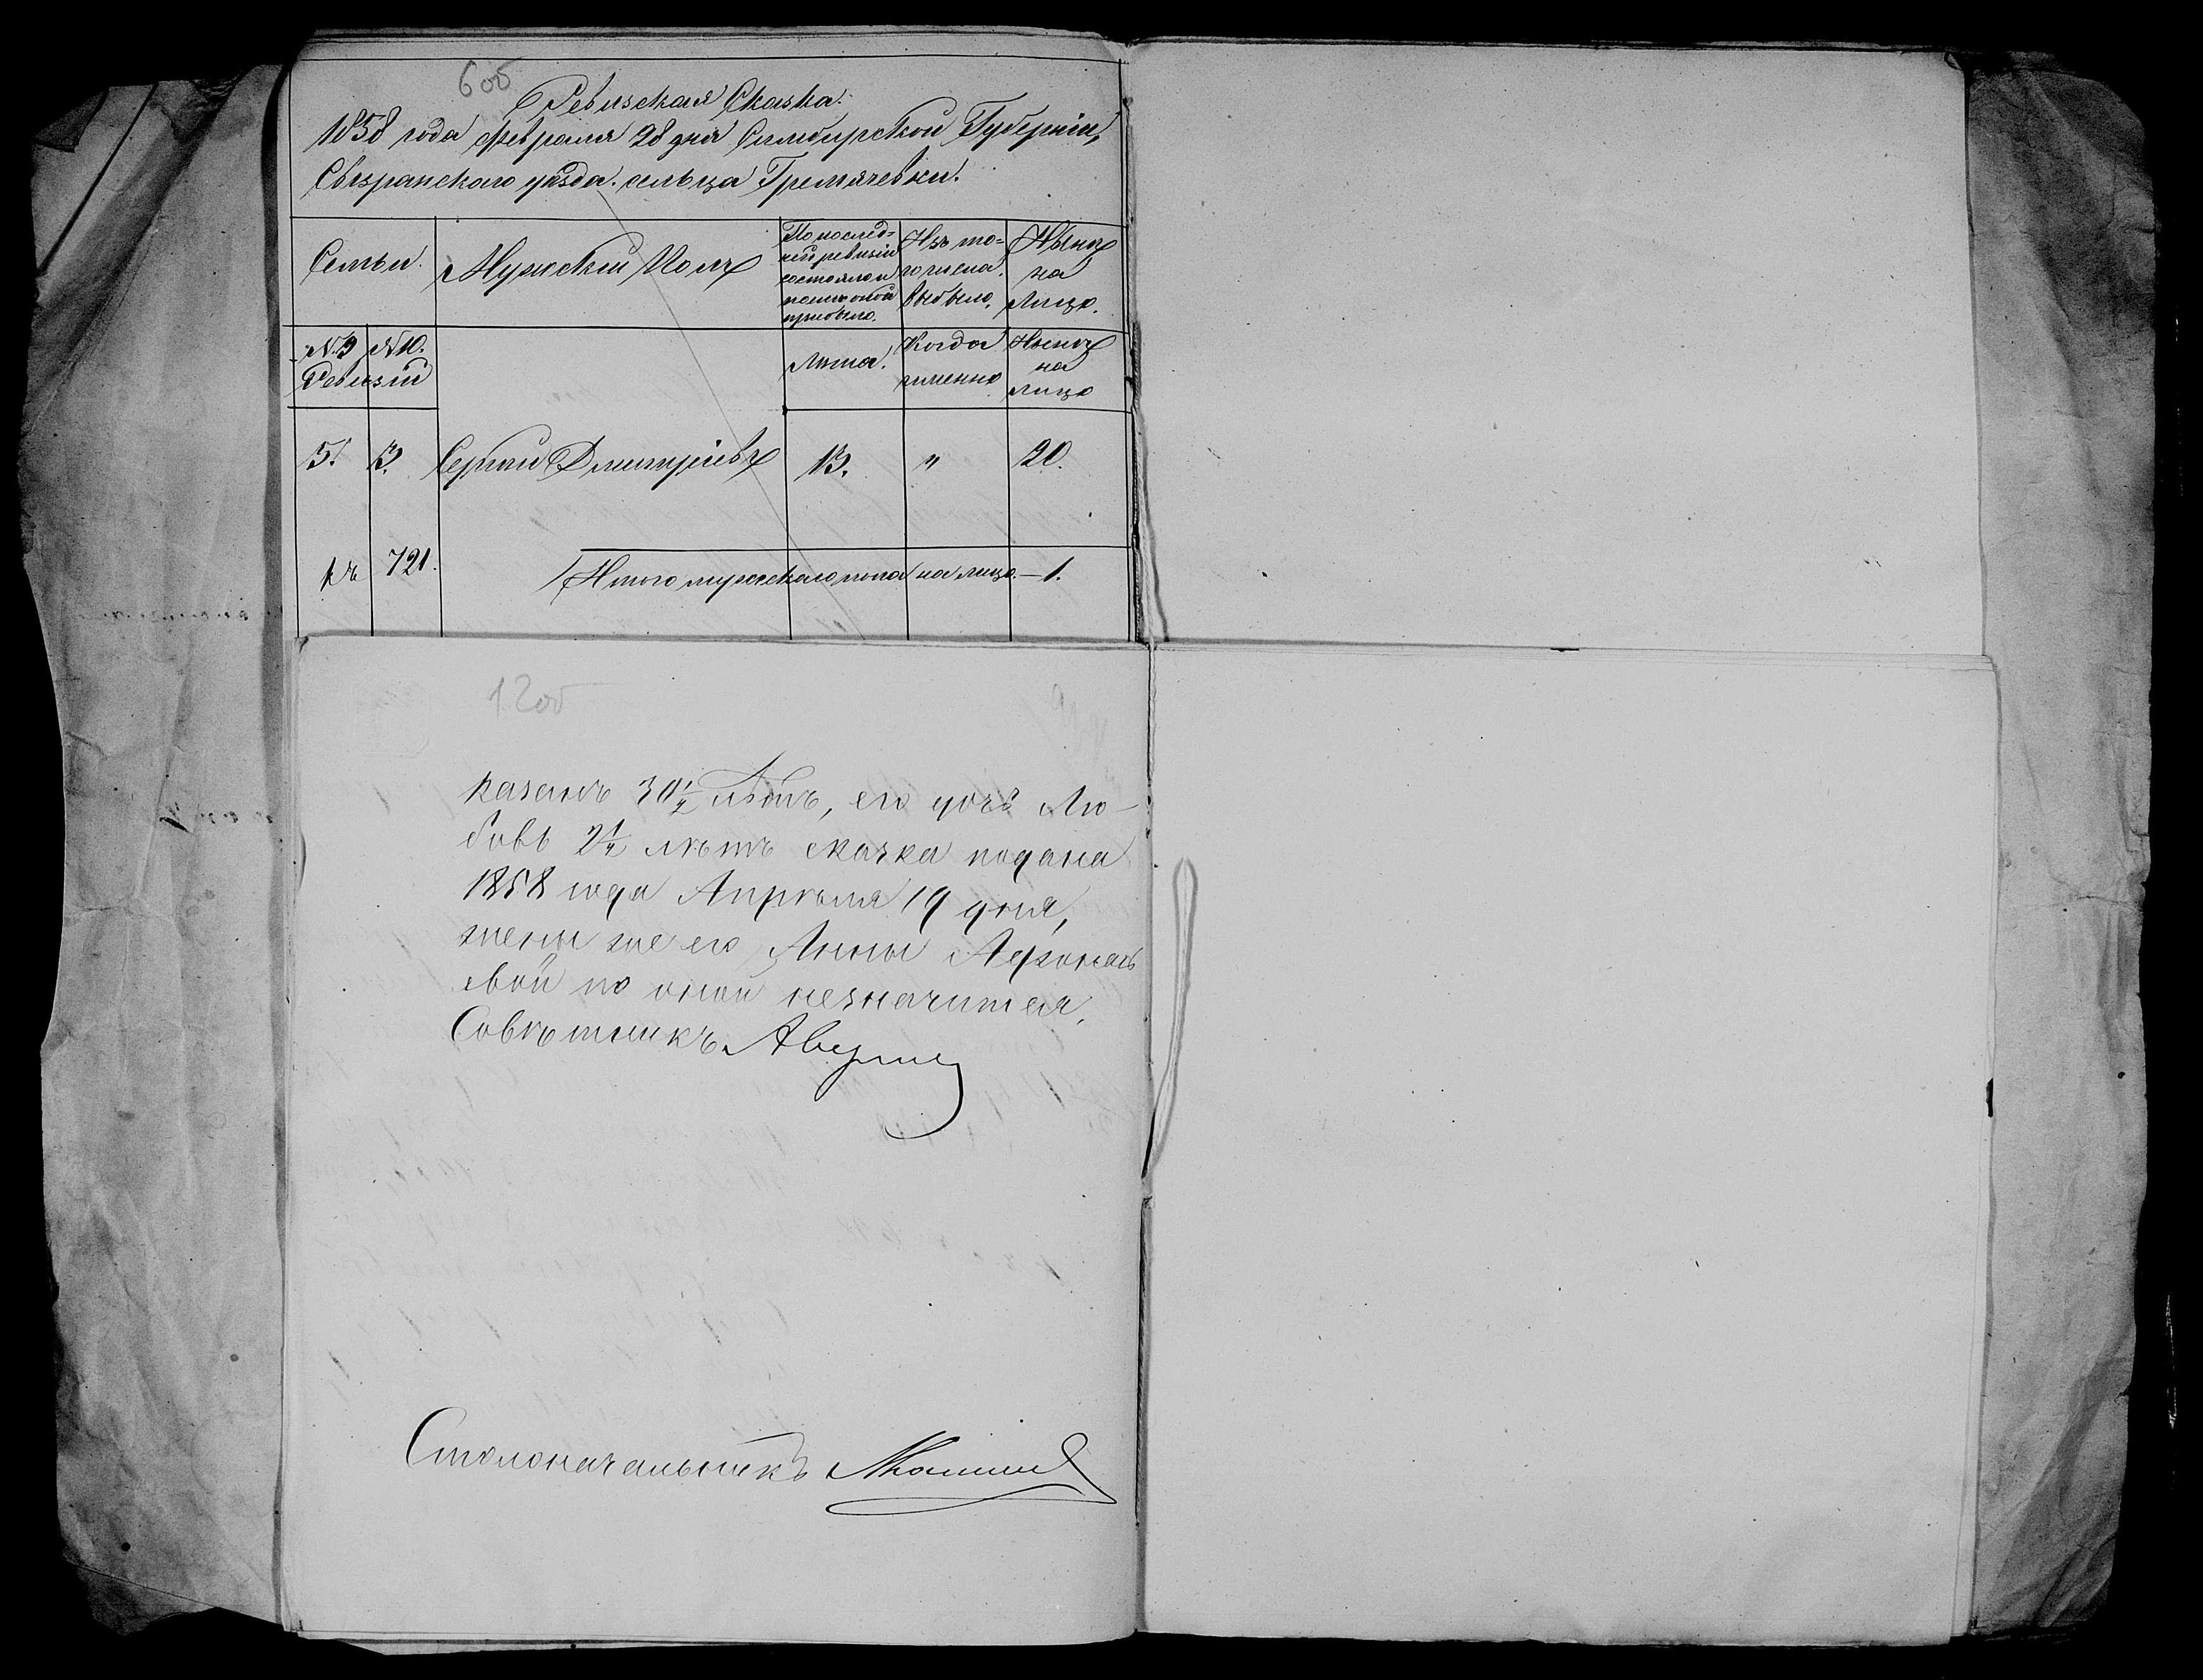 6 об
Ревизская Сказка.
1858 года февраля 28 дня Симбирской Губерніи,
Сызранскаго уѣзда. сельца Гремячевки.
Семьи.
Мужскій Полъ
По послед=
ней ревизіи
состояло и
послѣ оной
прибыло.
Изъ то=
го числа
выбыло.
Нынѣ
на
Лицо.
№ 9 № 10.
Ревизіи
Лѣта.
Когда
именно
Нынѣ
на
лицо
5. 3. Сергѣй Дмитріевъ 13. " 20.
къ 721. Итого мужскаго пола на лицо. — 1.
12 об
казанъ 30½ лѣтъ, его дочь Лю-
бовь 2½ лѣтъ сказка подана
1858 года Апрѣля 19 дня,
жены же его Анны Афонась
евой по оной незначится.
Совѣтникъ
Столоначальникъ